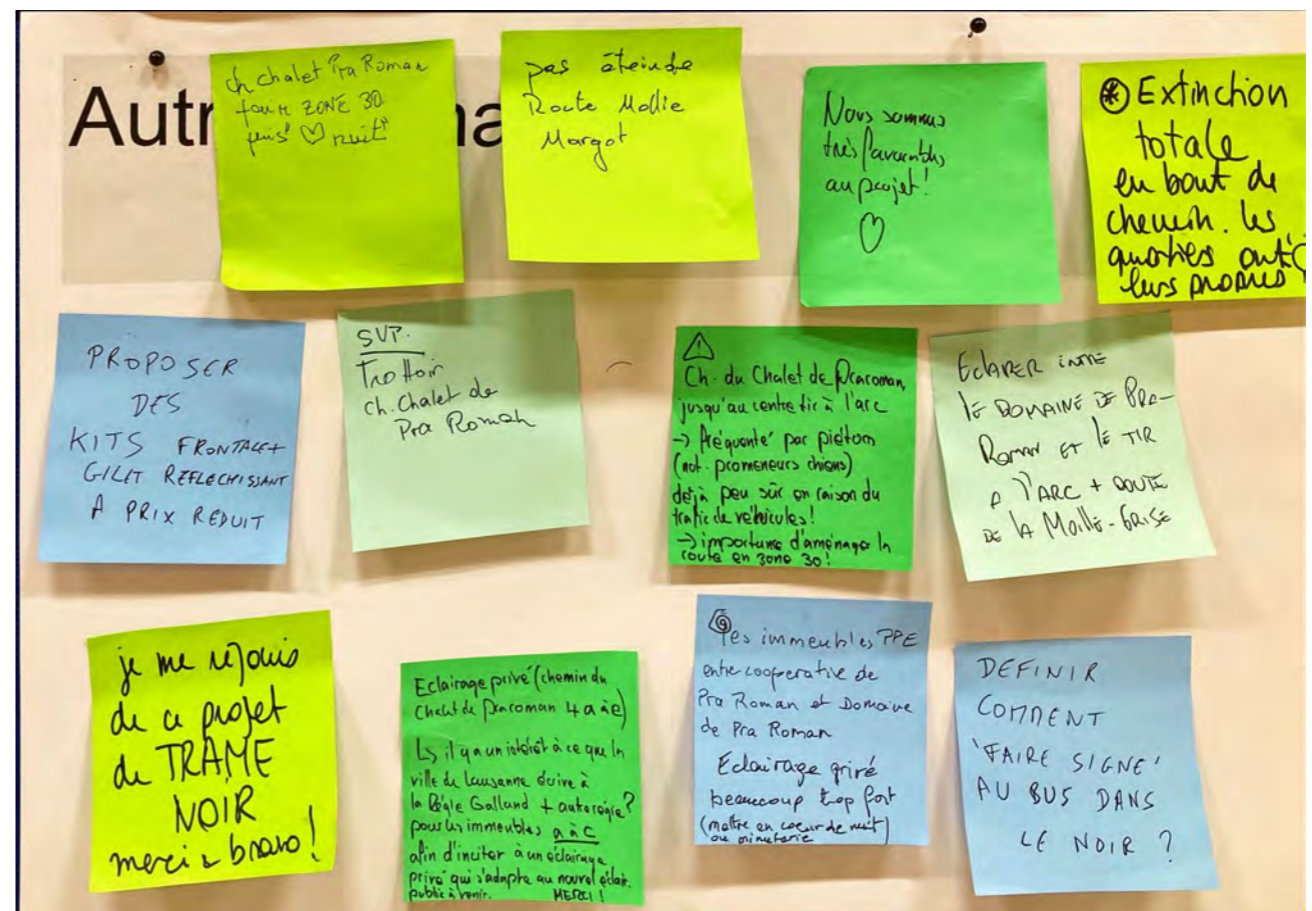 Autr
ch chalet Pra Roman
fair ZONE 30
puis ♡ nuit
pas éteindre
Route Mollie
Margot
Nous sommes
très favorables
au projet!
♡
* Extinction
totale
en bout de
chemin. les
quartiers ont
leurs propres
PROPOSER
DES
KITS FRONTALE+
GILET REFLECHISSANT
A PRIX REDUIT
SVP.
Trottoir
ch. Chalet de
Pra Roman
⚠
Ch. du Chalet de Praroman,
jusqu'au centre tir à l'arc
→ fréquenté par piétons
(not. promeneurs chiens)
déjà peu sûr en raison du
trafic de véhicules!
→ importance d'aménager la
route en zone 30!
Eclairer entre
le DOMAINE DE PRA-
Roman ET le TIR
A l'ARC + ROUTE
DE LA Moille-Grise
je me réjouis
de ce projet
de TRAME
NOIR
merci & bravo!
Eclairage privé (chemin du
Chalet de Praroman 4 a à e)
↳ il y a un intérêt à ce que la
ville de Lausanne écrive à
la Régie Galland + autorégie?
pour les immeubles a à c
afin d'inciter à un éclairage
privé qui s'adapte au nouvel éclair.
public à venir. MERCI!
les immeubles PPE
entre cooperative de
Pra Roman et Domaine
de Pra Roman
Eclairage privé
beaucoup trop fort
(mettre en coeur de nuit)
ou minuterie
DEFINIR
COMMENT
'FAIRE SIGNE'
AU BUS DANS
LE NOIR ?